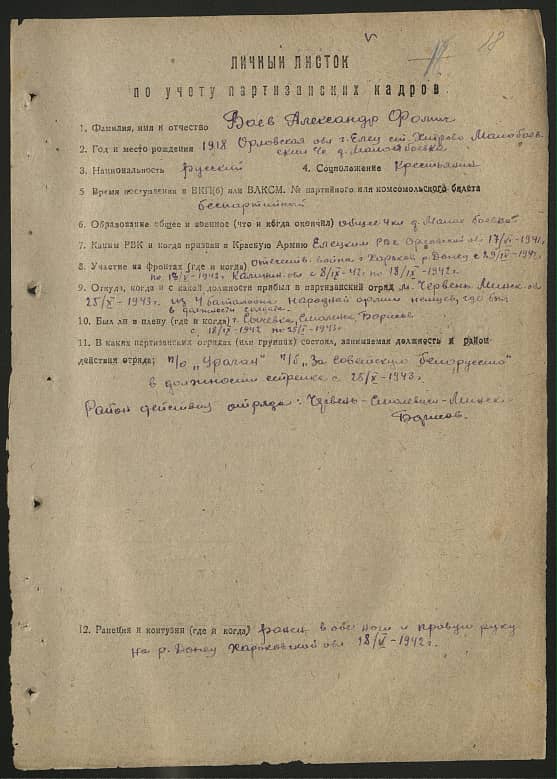 18
ЛИЧНЫЙ ЛИСТОК
по учету партизанских кадров
1. Фамилия, имя и отчество Баев Александр Фомич
2. Год и место рождения 1918 Орловская обл г. Елец ст. Хитрово Малобоев-
ский с/с д. Малая боевка
3. Национальность русский 4. Соцположение крестьянин
5 Время поступления в ВКП(б) или ВЛКСМ. № партийного или комсомольского билета
беспартийный
6. Образование общее и военное (что и когда окончил) общее 4 кл д. Малая боевка
7. Каким РВК и когда призван в Красную Армию Елецким РВК Орловской обл 17/ -1941г.
8. Участие на фронтах (где и когда) отечеств. война г. Харьков р. Донец с 29/ -1942г.
по 18/V-1942г. Калинин. обл с 8/IX-42г. по 18/IX-1942г.
9. Откуда, когда и с какой должности прибыл в партизанский отряд м. Червень Минск. обл
25/X-1943г. из 4 батальона народной армии немцев, где был
в должности солдата.
10. Был ли в плену (где и когда) г. Сычевка, Смоленск, Борисов
с 18/IX-1942 по 25/X-1943г.
11. В каких партизанских отрядах (или группах) состоял, занимаемая должность и район
действия отряда; п/о „Ураган" п/б „За советскую белоруссию"
в должности стрелка с 25/X-1943г.
Район действия отряда: Червень-Смолевичи-Минск-
Борисов.
12. Ранения и контузии (где и когда) ранен в обе ноги и правую руку
на р. Донец Харьковской обл 18/V-1942г.